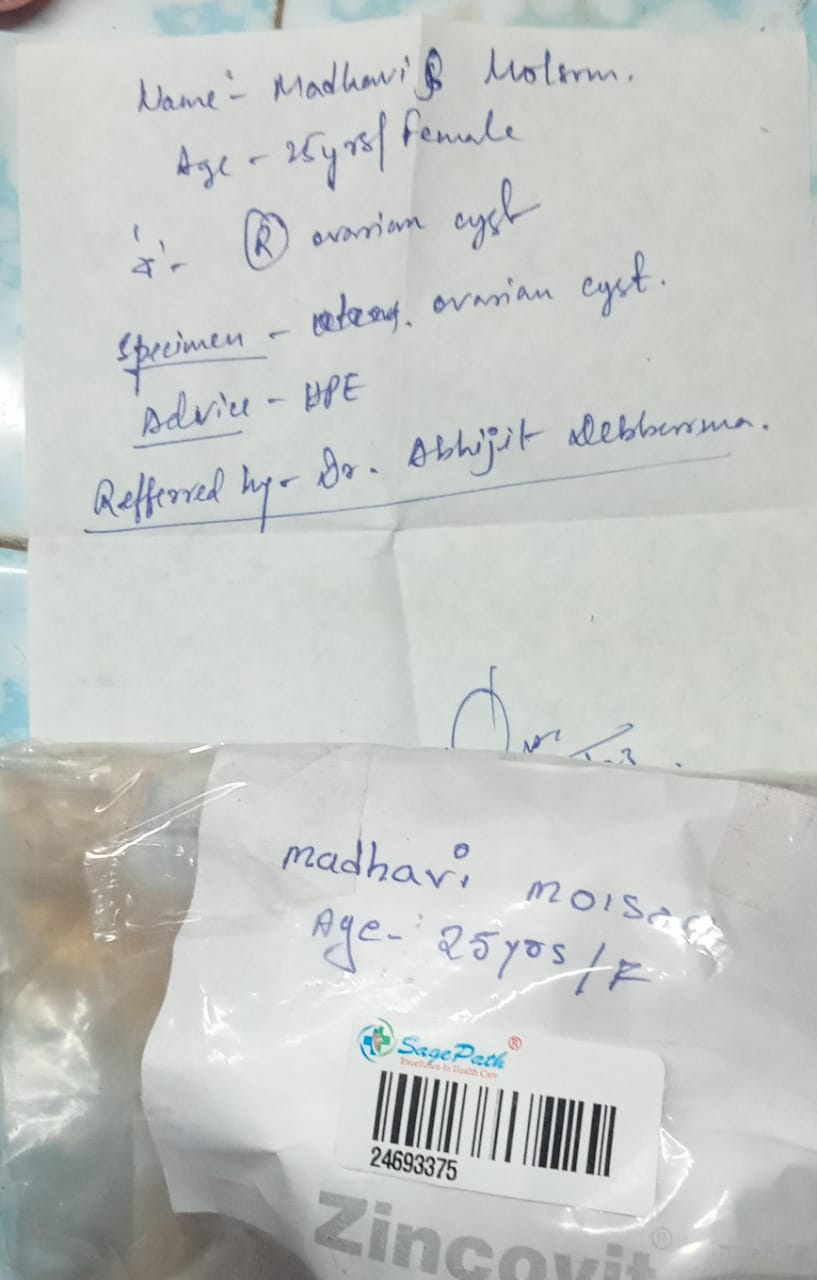 Name:- Madhavi Molsom.
Age - 25yrs/ Female
Ⓡ ovarian cyst
Specimen - ovarian cyst.
Advice - HPE
Refferred by - Dr. Abhijit Debbarma.
madhavi
Age-: 25yrs/F
SagePath®
Excellence In Health Care
24693375
Zincovit®